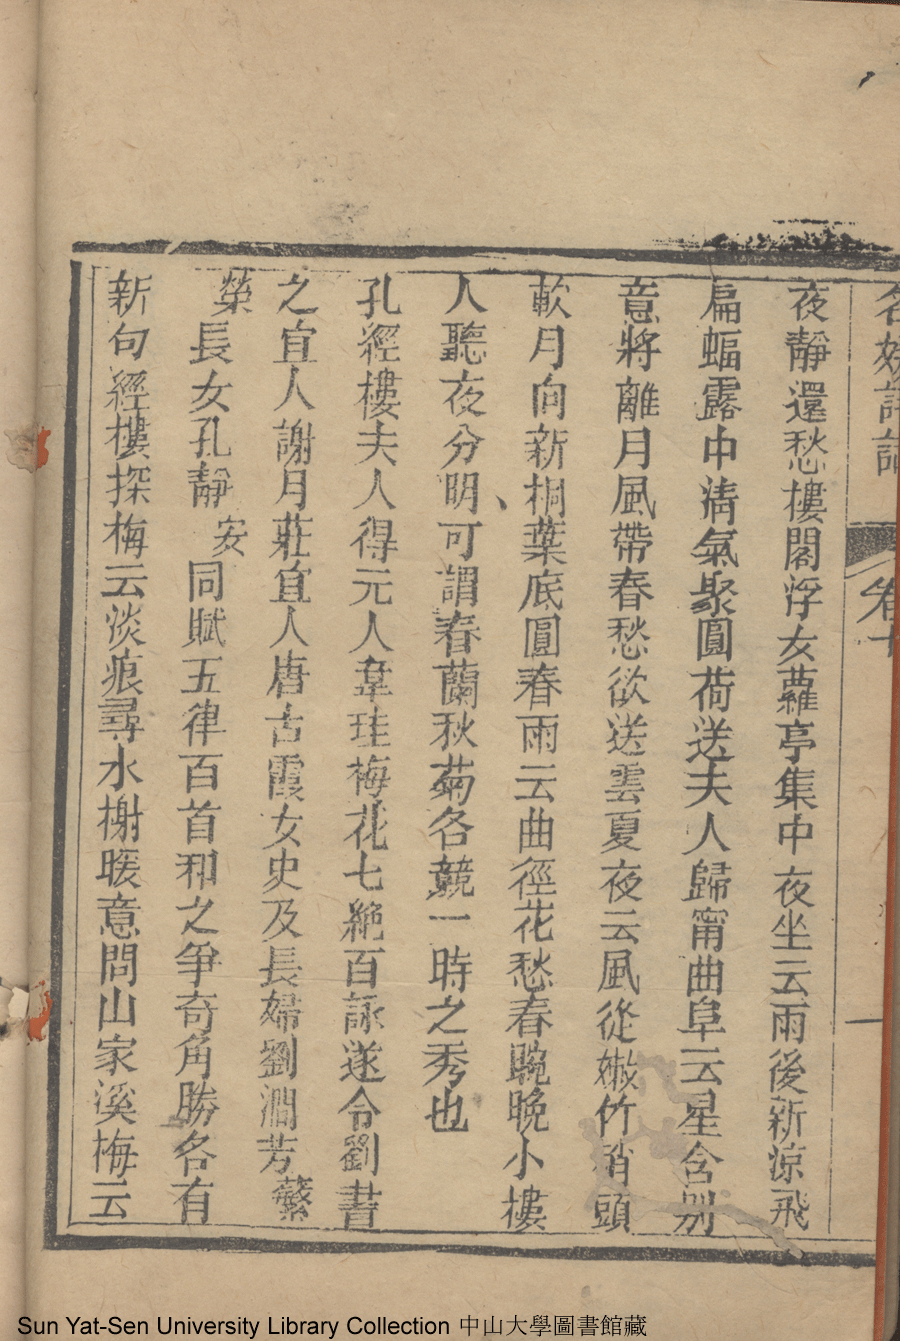 名媛詩話 卷十 一
夜靜還愁樓閣浮女蘿亭集中夜坐云雨後新涼飛
扁蝠露中清氣聚圓荷送夫人歸甯曲阜云星含別
意將離月風帶春愁欲送雲夏夜云風從嫩竹稍頭
軟月向新桐葉底圓春雨云曲徑花愁春晼晚小樓
人聽夜分明可謂春蘭秋菊各競一時之秀也
孔經樓夫人得元人韋珪梅花七絕百詠遂令劉書
之宜人謝月莊宜人唐古霞女史及長婦劉澗芳蘩
榮長女孔靜安同賦五律百首和之爭奇角勝各有
新句經樓探梅云淡痕尋水榭暖意問山家溪梅云
Sun Yat-Sen University Library Collection 中山大學圖書館藏